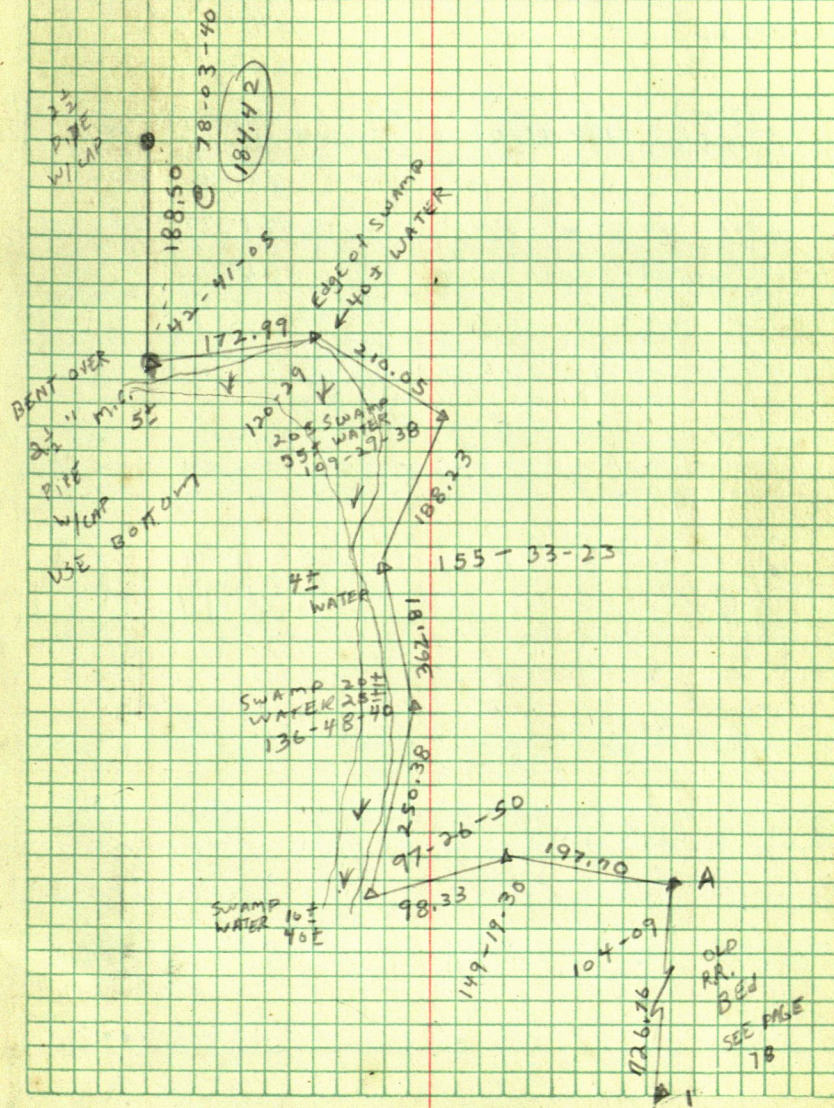 2 1/2
PIPE
W/ CAP
188.50
@ 78-03-40
184.42
42-41-05
172.99
Edge of SWAMP
40± WATER
210.05
BENT OVER
2 1/2"
PIPE
W/CAP
USE BOTTOM
M.C.
5±
120-29
20± SWAMP
35± WATER
109-29-38
188.23
155-33-23
4±
WATER
362.81
SWAMP 20±
WATER 25±
136-48-40
250.38
97-26-50
197.70
A
98.33
SWAMP 10±
WATER 40±
149-19-30
104-09
OLD
RR.
BEd
SEE PAGE
78
726.76
1